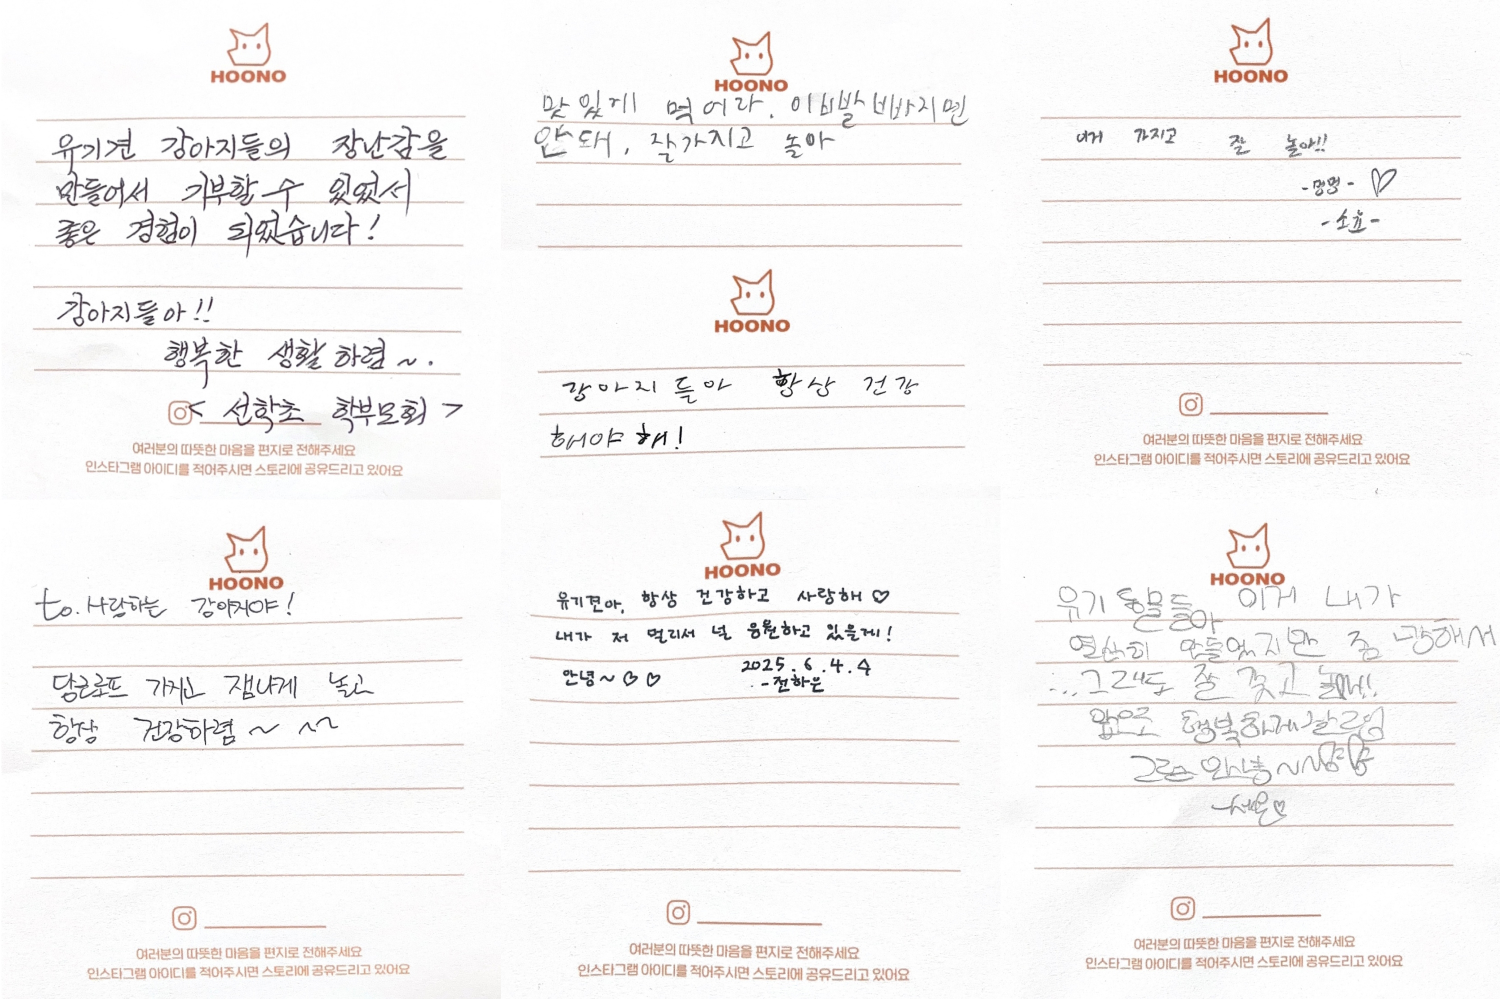 HOONO
유기견 강아지들의 장난감을
만들어서 기부할 수 있었서
좋은 경험이 되었습니다!
강아지들아!!
행복한 생활 하렴~.
< 선학초 학부모회 >
여러분의 따뜻한 마음을 편지로 전해주세요
인스타그램 아이디를 적어주시면 스토리에 공유드리고 있어요
HOONO
맛있게 먹어라. 이빨 빠지면
안돼, 잘가지고 놀아
HOONO
강아지들아 항상 건강
해야 해!
HOONO
이거 가지고 잘 놀아!!
-멍멍- ♡
-소효-
여러분의 따뜻한 마음을 편지로 전해주세요
인스타그램 아이디를 적어주시면 스토리에 공유드리고 있어요
HOONO
to. 사랑하는 강아지야!
당근로프 가지고 잼나게 놀고
항상 건강하렴~ ^^
여러분의 따뜻한 마음을 편지로 전해주세요
인스타그램 아이디를 적어주시면 스토리에 공유드리고 있어요
HOONO
유기견아, 항상 건강하고 사랑해 ♡
내가 저 멀리서 널 응원하고 있을게!
안녕~ ♡ ♡
2025.6.4.수
-전하은
여러분의 따뜻한 마음을 편지로 전해주세요
인스타그램 아이디를 적어주시면 스토리에 공유드리고 있어요
HOONO
유기 동물들아 이거 내가
열심히 만들었지만 좀 망해서
...그래도 잘 갖고 놀아!!
앞으로 행복하게 살으렴
그럼 안녕~
여러분의 따뜻한 마음을 편지로 전해주세요
인스타그램 아이디를 적어주시면 스토리에 공유드리고 있어요